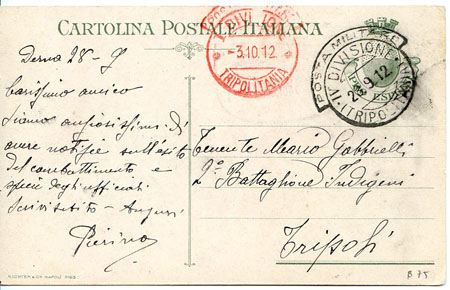 CARTOLINA POSTALE ITALIANA
DIVISIONE
-3.10.12.
TRIPOLITANIA
POSTA MILITARE
IV DIVISIONE
2 9 12
(TRIPO-TANIA)
Derna 28-9
Carissimo amico
Siamo ansiosissimi di
avere notizie sull'esito
del combattimento e
specie degli ufficiali
Scrivi subito - Auguri
Pierino
Tenente Mario Gabbrielli
2º Battaglione Indigeni
Tripoli
B 75